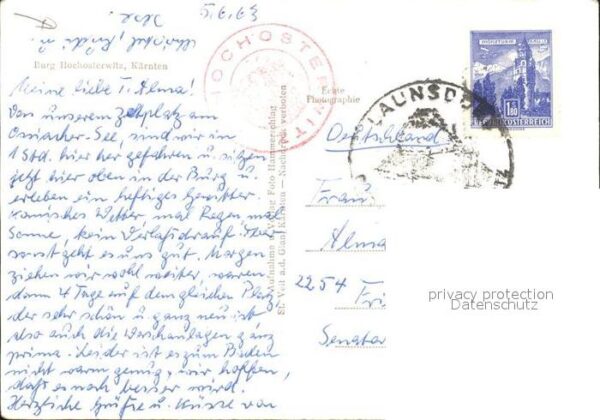 5.6.63
Burg Hochosterwitz, Kärnten
Meine liebe T. Alma!
Von unserem Zeltplatz am
Ossiacher-See, sind wir in
1 Std. hier her gefahren u. sitzen
jetzt hier oben in der Burg u.
erleben ein heftiges Gewitter.
Komisches Wetter, mal Regen mal
Sonne, kein Verlaß drauf. Aber
sonst geht es uns gut. Morgen
ziehen wir wohl weiter, waren
dann 4 Tage auf dem gleichen Platz
der sehr schön u. ganz neu ist
also auch die Waschanlagen ganz
prima. Leider ist es zum Baden
nicht warm genug, wir hoffen,
daß es noch besser wird.
Herzliche Grüße u. Küsse von
HOCHOSTERWITZ
Echte
Photographie
Aufnahme u. Verlag Foto Hammerschlag
St. Veit a.d. Glan, Kärnten — Nachdruck verboten
LAUNSDO
1.80
REPUBLIK ÖSTERREICH
Deutschland
Frau
Alma
2254 Fri
Senator
privacy protection
Datenschutz